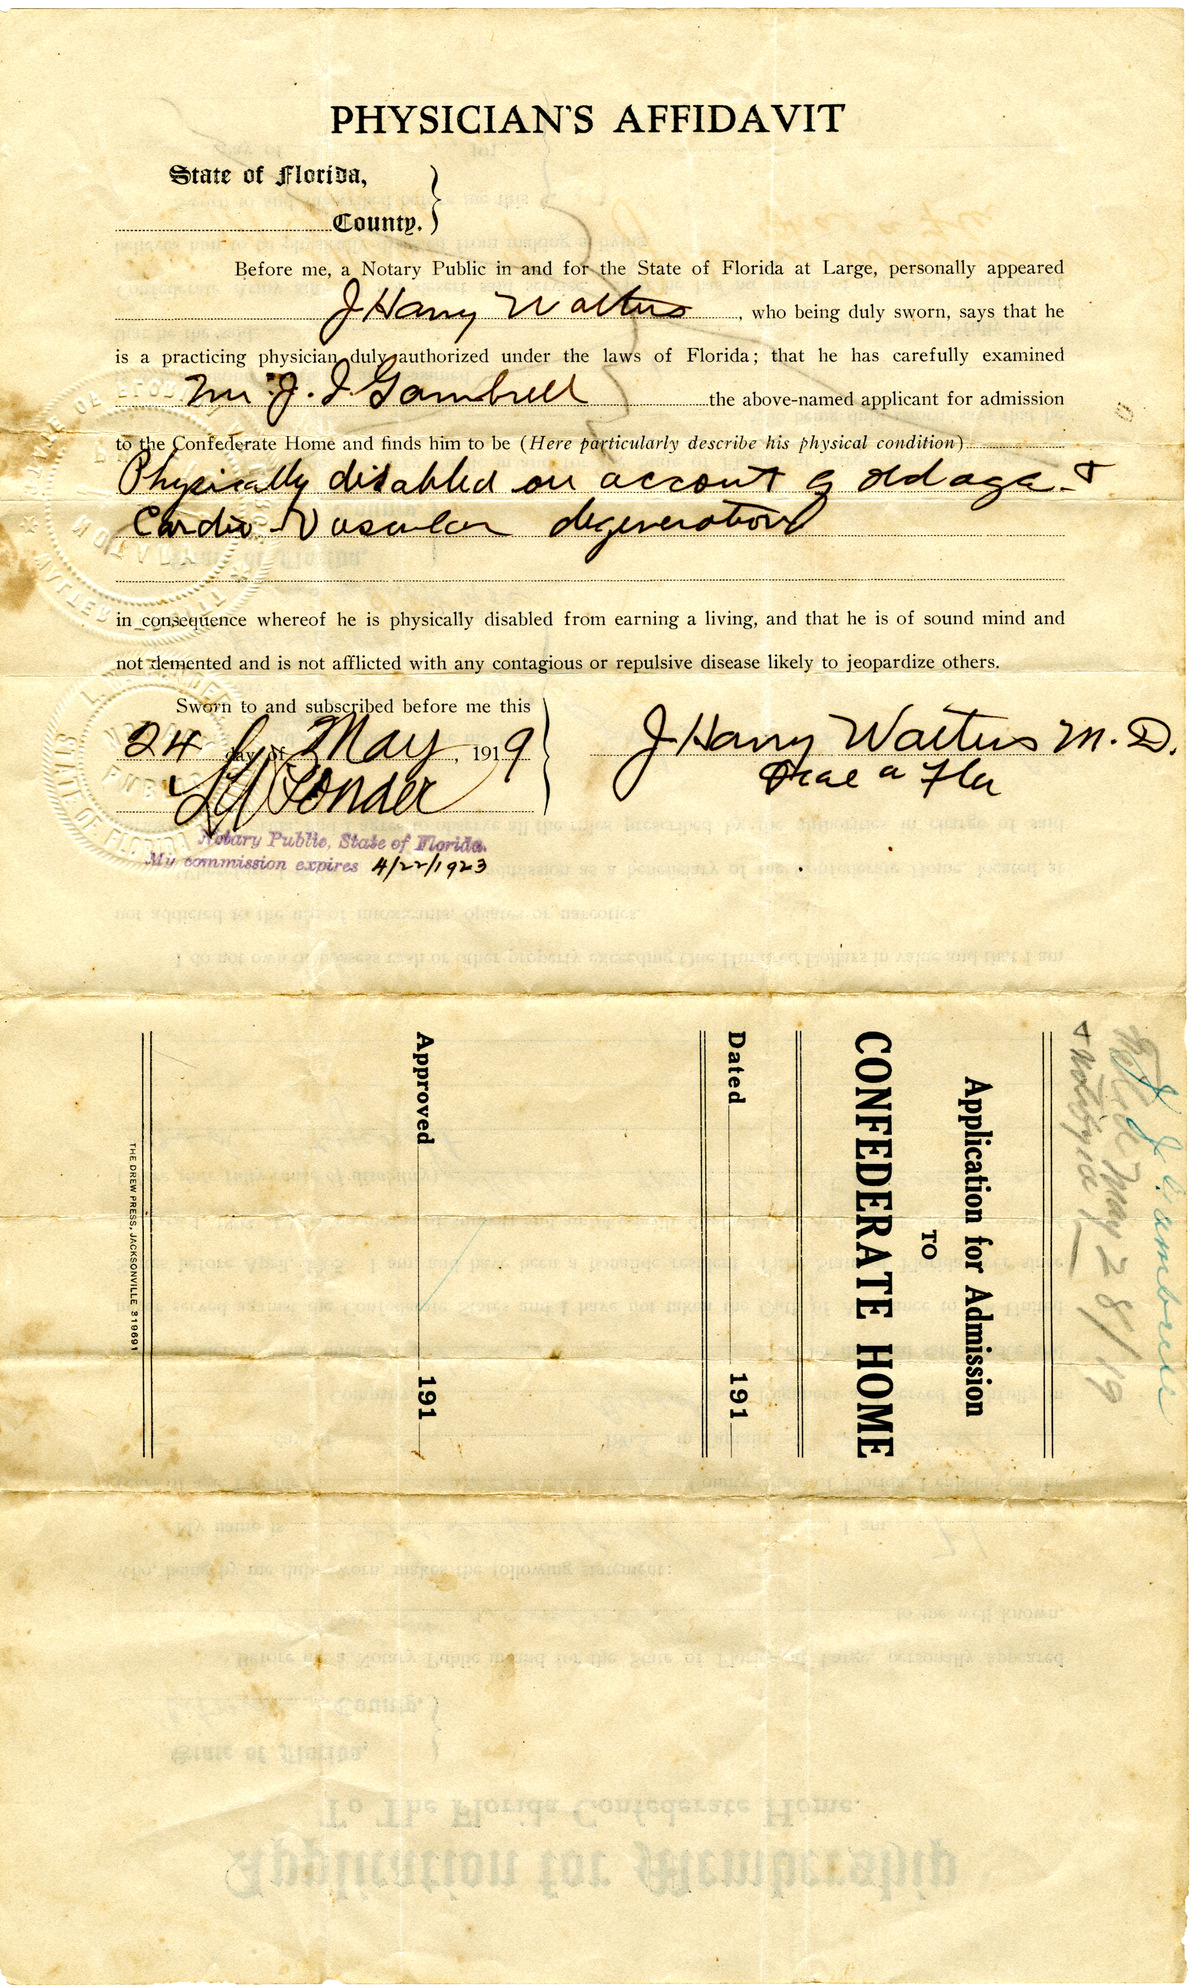 PHYSICIAN'S AFFIDAVIT
State of Florida,
County.
Before me, a Notary Public in and for the State of Florida at Large, personally appeared
J Harry Walters, who being duly sworn, says that he
is a practicing physician duly authorized under the laws of Florida; that he has carefully examined
Mr. J. J. Gambrell the above-named applicant for admission
to the Confederate Home and finds him to be (Here particularly describe his physical condition)
Physically disabled on account of old age &
Cardio-Vascular degeneration
in consequence whereof he is physically disabled from earning a living, and that he is of sound mind and
not demented and is not afflicted with any contagious or repulsive disease likely to jeopardize others.
Sworn to and subscribed before me this
24 day of May, 1919
J Harry Walters M.D.
Ocala Fla
Ponder
Notary Public, State of Florida.
My commission expires 4/22/1923
J J Gambrell
May 28/19
& notified
Application for Admission
TO
CONFEDERATE HOME
Dated 191
Approved 191
THE DREW PRESS, JACKSONVILLE 319691